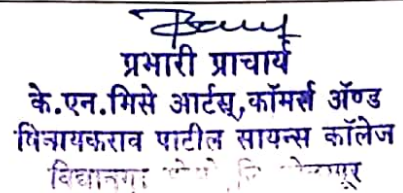 प्रभारी प्राचार्य
के.एन.भिसे आर्टस्,कॉमर्स ॲण्ड
विनायकराव पाटील सायन्स कॉलेज
विद्यानगर